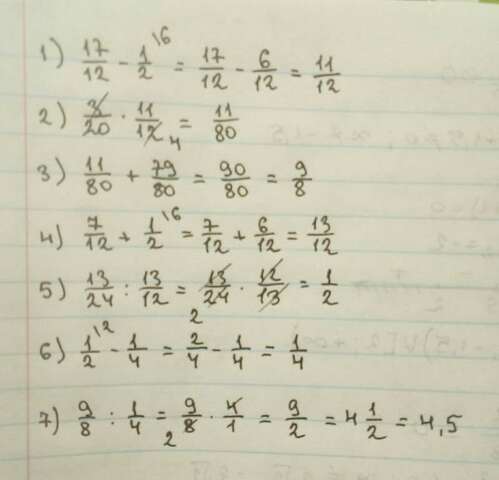 1) 17/12 - 1/2 \6 = 17/12 - 6/12 = 11/12
2) 3/20 · 11/12 4 = 11/80
3) 11/80 + 79/80 = 90/80 = 9/8
4) 7/12 + 1/2 \6 = 7/12 + 6/12 = 13/12
5) 13/24 : 13/12 = 13/24 2 · 12/13 = 1/2
6) 1/2 \2 - 1/4 = 2/4 - 1/4 = 1/4
7) 9/8 : 1/4 = 9/8 2 · 4/1 = 9/2 = 4 1/2 = 4,5